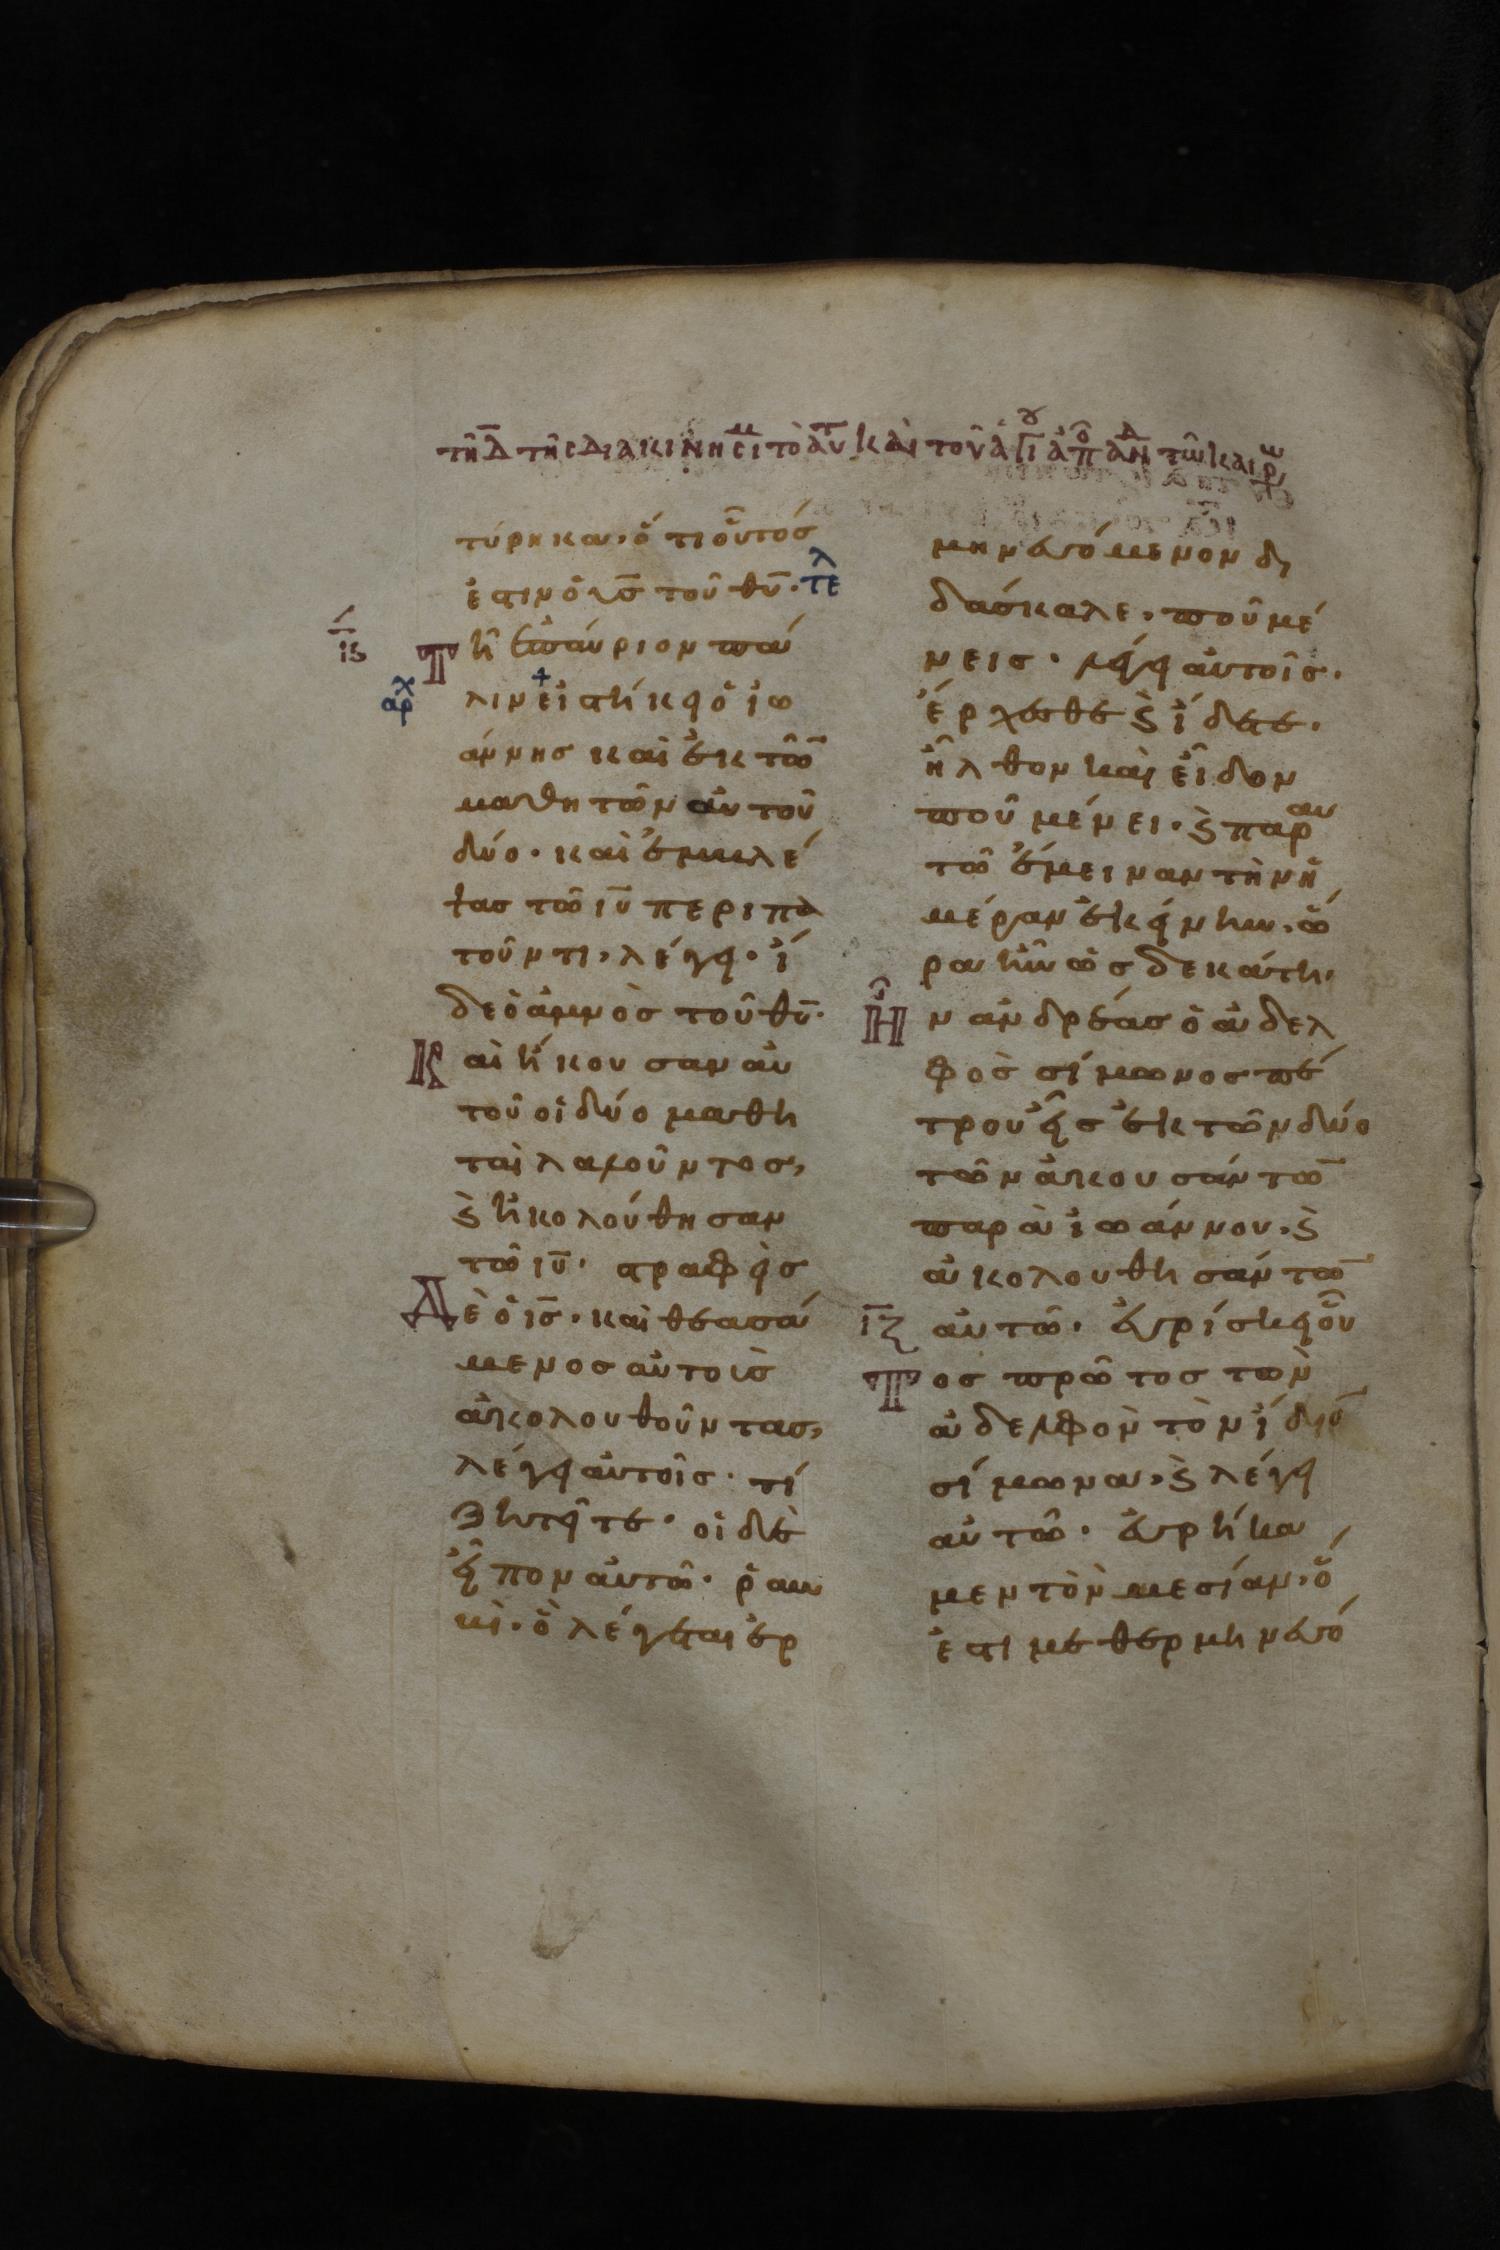 τῆ δ̅ τῆς διακινησι̅μ τὸ αὐτ καὶ τοῦ ἁγί ἀπο ἀνδ τῶ καιρῶ
τύρηκα, ὅτι οὗτός
ἐστιν ὁ υ̅ς̅ τοῦ θ̅υ̅. τελ
ις
Τῆ ἐπαύριον πά
αρχ
λιν + εἱστήκει ὁ ἰω
άννης καὶ ἐκ τῶ̅
μαθητῶν αὐτοῦ
δύο. καὶ ἐμβλέ
ψας τῶ ι̅υ̅ περιπα
τοῦντι, λέγει. ἴ
δε ὁ ἀμνὸς τοῦ θ̅υ̅.
Καὶ ἤκουσαν αὐ
τοῦ οἱ δύο μαθη
ταὶ λαλοῦντος,
ϗ ἠκολούθησαν
τῶ ι̅υ̅. στραφεὶς
Δὲ ὁ ι̅ς̅. καὶ θεασά
μενος αὐτοὺς
ἀκολουθοῦντας,
λέγει αὐτοῖς. τί
ζητεῖτε. οἱ δὲ
εἶπον αὐτῶ. ῥαβ
βὶ. ὃ λέγεται ἑρ
μηνευόμενον δι
δάσκαλε, ποῦ μέ
νεις. λέγει αὐτοῖς.
ἔρχεσθε ϗ ἴδετε.
ἦλθον καὶ εἶδον
ποῦ μένει. ϗ παρ αυ
τῶ ἔμειναν τὴν ἡ
μέραν ἐκείνην. ὥ
ρα ἦν ὡς δεκάτη.
Ἦν ἀνδρέας ὁ ἀδελ
φὸς σίμωνος πέ
τρου εἷς ἐκ τῶν δύο
τῶν ἀκουσάντω̅
παρὰ ἰωάννου. ϗ
ἀκολουθησάντω̅
ιζ αὐτῶ. εὑρίσκει οὗ
Τος πρῶτος τὼν
ἀδελφὸν τὸν ἴδιο̅
σίμωνα, ϗ λέγει
αὐτῶ. εὑρήκα
μεν τὸν μεσίαν, ὅ
ἐστι μεθερμηνευό